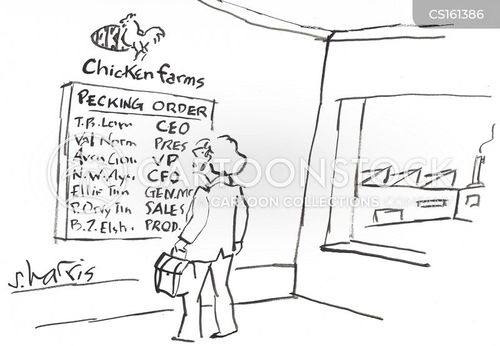 CS161386
Chicken farms
PECKING ORDER
T.B. Lom CEO
Val Norm PRES
VP
N.W. CFO
Ellis Tin GEN. M
Tin SALES
B.Z. Elsh. PROD.
CARTOONSTOCK
CARTOON COLLECTIONS
S. harris